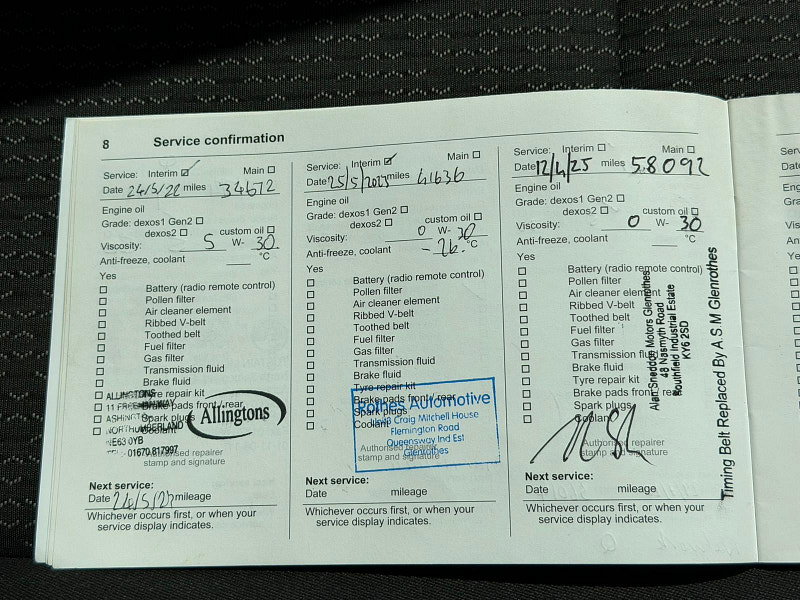 8 Service confirmation
Service: Interim ☑ Main ☐
Date 24/5/22 miles 34672
Engine oil
Grade: dexos1 Gen2 ☐
dexos2 ☐ custom oil ☐
Viscosity: 5 W- 30
Anti-freeze, coolant °C
Yes
☐ Battery (radio remote control)
☐ Pollen filter
☐ Air cleaner element
☐ Ribbed V-belt
☐ Toothed belt
☐ Fuel filter
☐ Gas filter
☐ Transmission fluid
☐ Brake fluid
☐ Tyre repair kit
☐ Brake pads front/ rear
☐ Spark plugs
☐ Coolant
ALLINGTONS
NE63 0YB
01670 817997
Allingtons
Authorised repairer
stamp and signature
Next service:
Date mileage
Whichever occurs first, or when your
service display indicates.
Service: Interim ☑ Main ☐
Date 25/5/2023 miles 41636
Engine oil
Grade: dexos1 Gen2 ☐
dexos2 ☐ custom oil ☐
Viscosity: 0 W- 30
Anti-freeze, coolant -26. °C
Yes
☐ Battery (radio remote control)
☐ Pollen filter
☐ Air cleaner element
☐ Ribbed V-belt
☐ Toothed belt
☐ Fuel filter
☐ Gas filter
☐ Transmission fluid
☐ Brake fluid
☐ Tyre repair kit
☐ Brake pads front/ rear
☐ Spark plugs
☐ Coolant
rothes Automotive
Craig Mitchell House
Flemington Road
Queensway Ind Est
Glenrothes
Authorised repairer
stamp and signature
Next service:
Date mileage
Whichever occurs first, or when your
service display indicates.
Service: Interim ☐ Main ☐
Date 12/4/25 miles 58092
Engine oil
Grade: dexos1 Gen2 ☐
dexos2 ☐ custom oil ☐
Viscosity: 0 W- 30
Anti-freeze, coolant °C
Yes
☐ Battery (radio remote control)
☐ Pollen filter
☐ Air cleaner element
☐ Ribbed V-belt
☐ Toothed belt
☐ Fuel filter
☐ Gas filter
☐ Transmission fluid
☐ Brake fluid
☐ Tyre repair kit
☐ Brake pads front/ rear
☐ Spark plugs
☐ Coolant
Alan Sneddon Motors Glenrothes
48 Nasmyth Road
Southfield Industrial Estate
KY6 2SD
Timing Belt Replaced By A S M Glenrothes
Authorised repairer
stamp and signature
Next service:
Date mileage
Whichever occurs first, or when your
service display indicates.